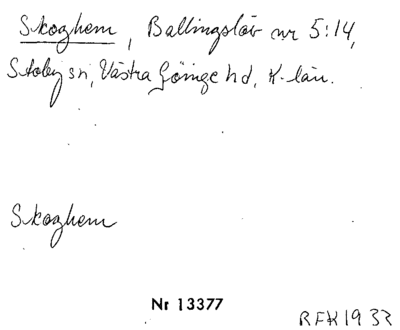 Skoghem, Ballingslöv nr 5:14,
Stoby sn, Västra Göinge hd, K-län.
Skoghem
Nr 13377
RFK 1933